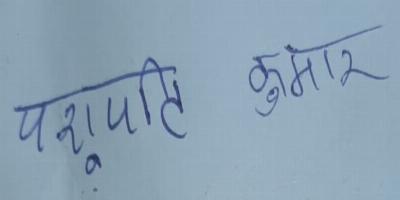 पशुपति कुमार